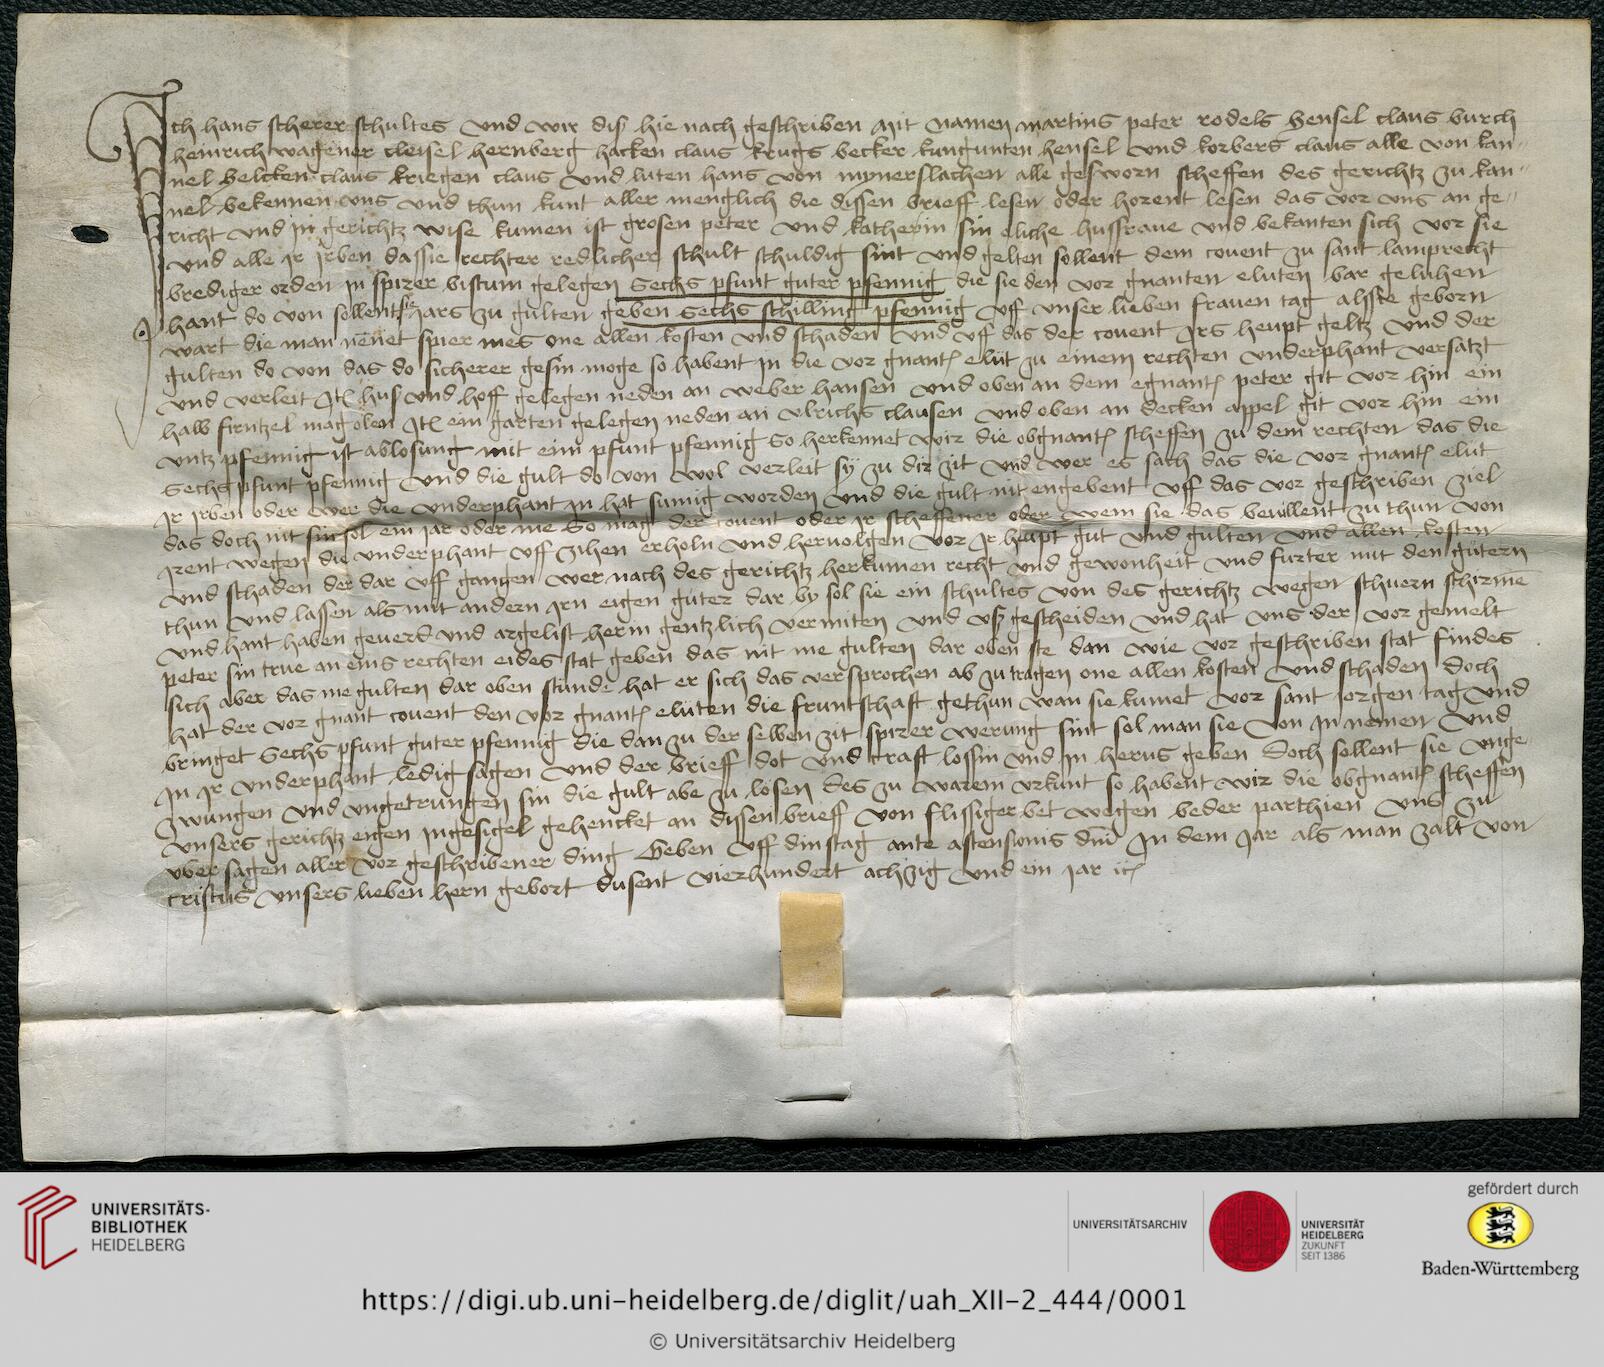 Ich hans scherer schultes und wir diß hie nach geschriben mit namen martins peter rodels hensel claus burch
heinrich wagener cleisel hernberg hacken claus krugs becker kungunten hensel und korbers claus alle von kan-
nel belcken claus kriegen claus und luten hans von mynerslachen alle gesworn scheffen des gerichtz zu kan-
nel bekennen uns und thun kunt aller menglich die dissen brieff lesen oder horent lesen das vor uns an ge-
richt und in gerichtz wise kumen ist grosen peter und katherin sin eliche hussfraue und bekanten sich vor sie
und alle ir irben dassie rechter redlicher schult schuldig sint und gelten sollent dem covent zu sant lamprecht
brediger orden in spirer bistum gelegen sechs pfunt guter pfennig die sie den vor gnanten eluten bar geluhen
hant do von sollent sie jars zu gulten geben sechs schilling pfennig uff unser lieben frauen tag alsse geborn
wart die man nennet spier mes one allen kosten und schaden und uff das der covent irs heupt geltz und der
gulten do von das do sicherer gesin moge so habent in die vor gnanten elut zu einem rechten underphant versatzt
und verleit Item huß und hoff gelegen neden an weber hansen und oben an dem egnanten peter git vor hin ein
halb firntzel magolen Item ein garten gelegen neden an ulrichs clausen und oben an decken appel git vor hin ein
untz pfennig ist ablosung mit eim pfunt pfennig So herkennet wir die obgnanten scheffen zu dem rechten das die
sechs pfunt pfennig und die gult do von wol verleit sy zu dir zit und wer es sach das die vor gnanten elut
ir irben oder wer die underphant in hat sumig worden und die gult nit engebent uff das vor geschriben ziel
das doch nit sin sol ein jar oder me So mag der covent oder ir scheffener oder wem sie das bevillent zu thun von
irent wegen die underphant uff zihen erholn und hervolgen vor ir heupt gut und gulten und allen kosten
und schaden der dar uff gangen wer nach des gerichtz herkumen recht und gewonheit und furter mit den gutern
thun und lassen als mit andern irn eigen guter dar by sol sie ein schultes von des gerichtz wegen schuern schirmen
und hant haben geverd und argelist herin gentzlich vermiten und uß gescheiden und hat uns der vor gemelt
peter sin true an eins rechten eides stat geben das nit me gulten dar oben ste dan wie vor geschriben stat findes
sich aber das me gulten dar oben stunde hat er sich das versprochen ab zu tragen one allen kosten und schaden doch
hat der vor gnant covent den vor gnanten eluten die fruntschaft gethun wan sie kumet vor sant jorgen tag und
bringet sechs pfunt guter pfennig die dan zu der selben zit spirer werung sint sol man sie von in nemen und
in ir underphant ledig sagen und der brieff dot und craft lossin und in herus geben doch sollent sie unge-
zwungen und ungetrungen sin die gult abe zu losen des zu warem urkunt so habent wir die obgnanten scheffen
unsers gerichtz eigen ingesigel gehencket an dissen brieff von flissiger bet wegen beder parthien uns zu
ubersagen aller vor geschribener ding Geben uff dinstag ante astensionis domini In dem jar als man zalt von
cristus unsers lieben hern gebort dusent vierhundert achzig und ein jar etc
UNIVERSITÄTS-
BIBLIOTHEK
HEIDELBERG
UNIVERSITÄTSARCHIV
UNIVERSITÄT
HEIDELBERG
ZUKUNFT
SEIT 1386
gefördert durch
Baden-Württemberg
https://digi.ub.uni-heidelberg.de/diglit/uah_XII-2_444/0001
© Universitätsarchiv Heidelberg